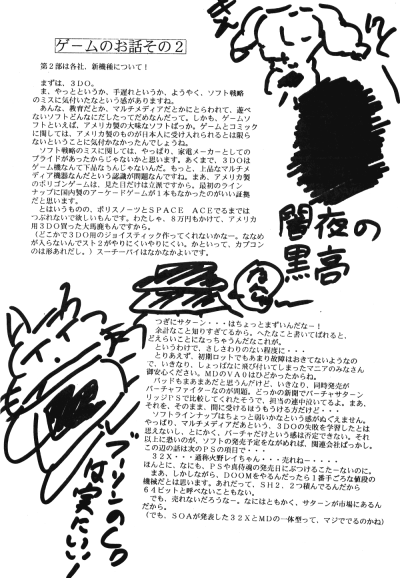 ゲームのお話その2
第2部は各社、新機種について!
まずは、3DO。
ま、やっとというか、手遅れというか、ようやく、ソフト戦略
のミスに気付いたなという感がありますね。
あんな、教育だとか、マルチメディアだかにとらわれて、遊べ
ないソフトどんなにだしたってだめなんだって。しかも、ゲームソ
フトといえば、アメリカ製の大味なソフトばっか。ゲームとコミック
に関しては、アメリカ製のものが日本人に受け入れられるとは限ら
ないということに気付かなかったんでしょうね。
ソフト戦略のミスに関しては、やっぱり、家電メーカーとしての
プライドがあったからじゃないかと思います。あくまで、3DOは
ゲーム機なんて下品なもんじゃないんだ。もっと、上品なマルチメデ
ィア機器なんだという認識が問題なんですね。まあ、アメリカ製
のポリゴンゲームは、見た目だけは立派ですから。最初のライン
ナップに国内製のアーケードゲームが1本もなかったのがいい証拠
だと思います。
とはいうものの、ポリスノーツとSPACE ACEでるまでは
つぶれないで欲しいもんです。わたしゃ、8万円もかけて、アメリカ
用3DO買った大馬鹿もんですから。
(どこかで3DO用のジョイスティック作ってくれないかなー。ななめ
が入らないんでスト2がやりにくいやりにくい。かといって、カプコン
のは形あれだし。)スーチーパイはなかなかよいです。
闇夜の
黒高
つぎにサターン・・・はちょっとまずいんだなー!
余計なこと知りすぎてるから。へたなこと書いてばれると、
どえらいことになっちゃうんだなこれが。
というわけで、さしさわりのない程度に・・・
とりあえず、初期ロットでもあまり故障はおきてないようなの
で、いきなり、しょっぱなに飛び付いてしまったマニアのみなさん
御安心ください。MDのVA0はひどかったからね。
パッドもまあまあだと思うんだけど、いきなり、同時発売が
バーチャファイターなのが問題。どっかの新聞でバーチャサターン
リッジPSで比較してくれたそうで、担当の連中泣いてるよ。まあ、
それを、そのまま、間に受けるほうもうける方だけど・・・
ソフトラインナップはちょっと弱いかなという感がぬぐえません。
やっぱり、マルチメディアだあという、3DOの失敗を学習したとは
思えないし、とにかく、バーチャだけという感は否定できない。それ
以上に悪いのが、ソフトの発売予定をながめれば、関連会社ばっかし。
この辺の話は次のPSの項目で・・・
32X・・・通称火野レイちゃん・・・売れねー・・・・
ほんとに、なにも、PSや真侍魂の発売日にぶつけるこたーないのに。
まあ、しかしながら、DOOMをやるんだったら1番手ごろな値段の
機械だとは思います。あれだって、SH2、2つ積んでるんだから
64ビットと呼べないこともない。
でも、売れないだろうなー。なにはともかく、サターンが市場にあるん
だから。
(でも、SOAが発表した32XとMDの一体型って、マジででるのかね)
ブーリンのCD
は実にいい!